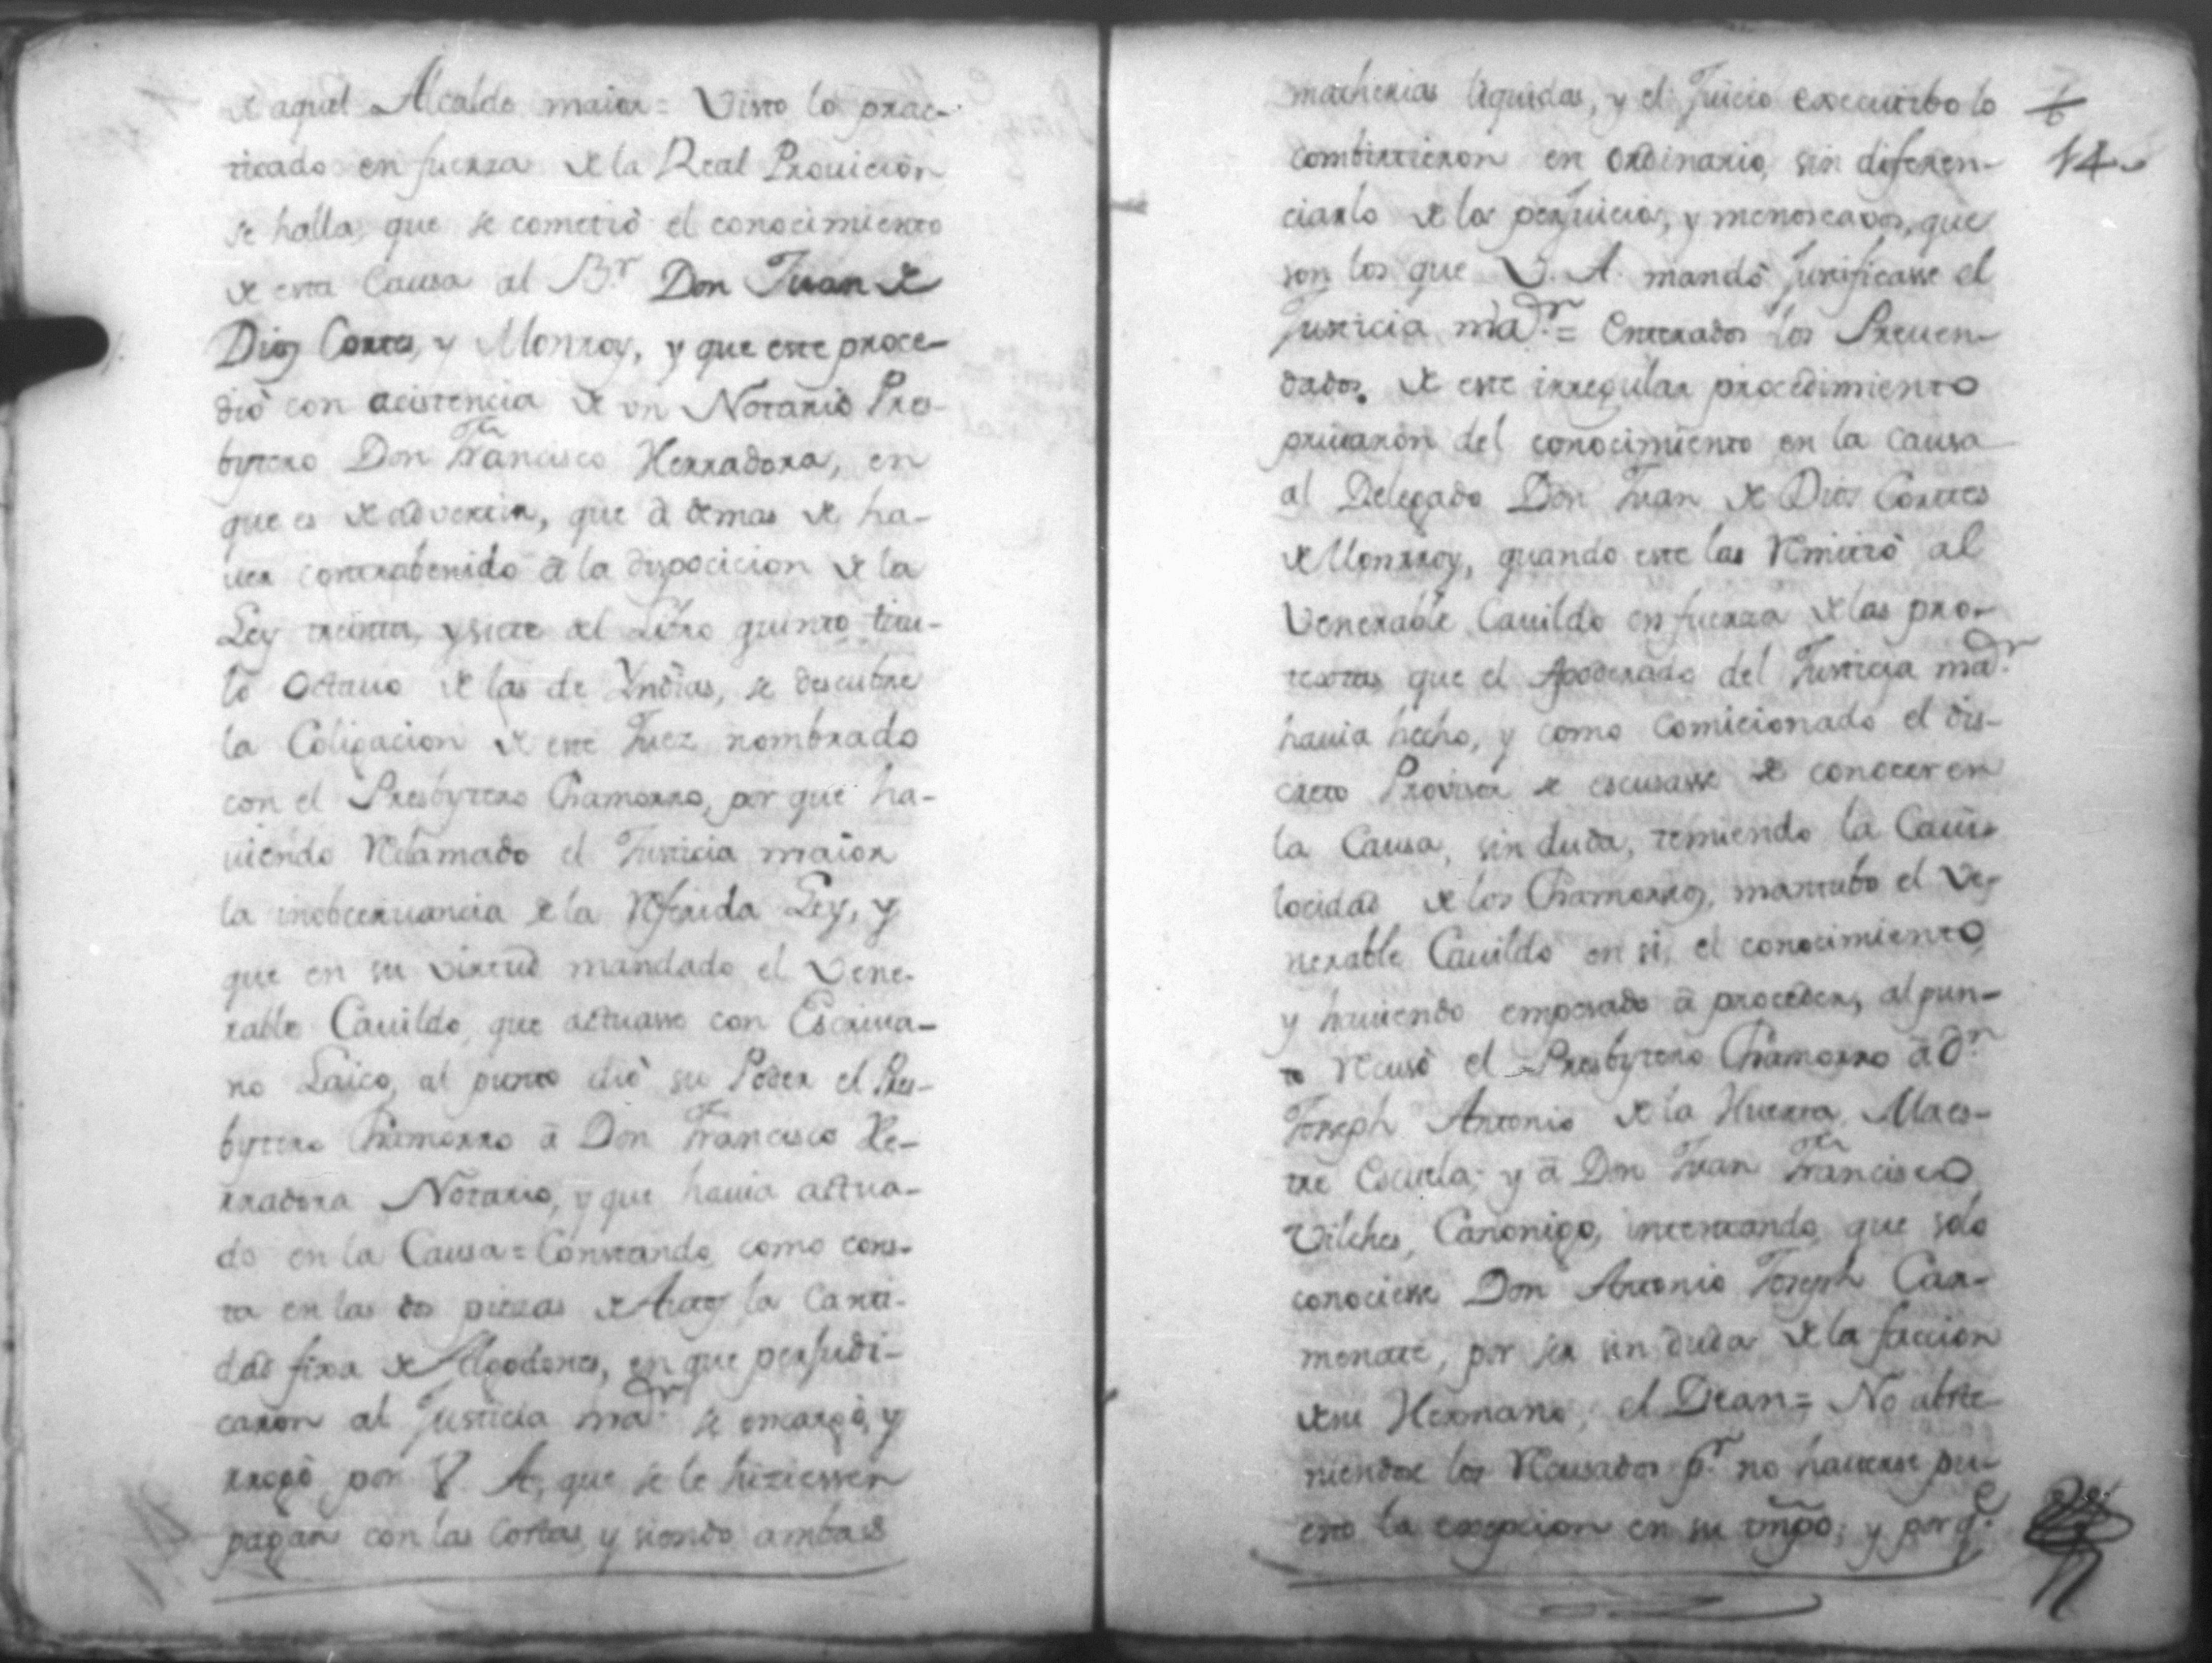 de aquel Alcalde maior = Visto lo prac-
ticado en fuerza de la Real Provicion
se halla, que se cometiò el conocimiento
de esta Causa al B.r Don Juan de
Dios Cortes, y Monroy, y que este proce-
diò con acistencia de vn Notario Pres-
bytero Don Francisco Herradora, en
que es de advertir, que à demas de ha-
uer contrabenido à la dispocicion de la
Ley treinta, y siete del Libro quinto titu-
lo Octauo de las de Yndias, se descubre
la Coligacion de este Juez nombrado
con el Presbytero Chamorro, por que ha-
uiendo Reclamado el Justicia maior
la inobceruancia de la Referida Ley, y
que en su virtud mandado el Vene-
rable Cauildo, que actuasse con Escriua-
no Laico, al punto diò su Poder el Pres-
bytero Chamorro à Don Francisco He-
rradora Notario, y que hauia actua-
do en la Causa = Constando, como cons-
ta en las dos piezas de Autos la canti-
dad fixa de Algodones, en que perjudi-
caron al Justicia ma.or se encargò, y
rrogò por V. A. que se le hiziessen
pagar con las Costas, y siendo ambas
matherias liquidas, y el Juicio executibo lo
combirtieron en ordinario, sin diferen-
ciarlo de los perjuicios, y menoscavos, que
son los que V. A. mandò justificasse el
Justicia ma.or = Enterados los Preuen-
dados de este irregular procedimiento
priuaron del conocimiento en la causa
al Delegado Don Juan de Dios Cortes
de Monrroy, quando este las Remitiò al
Venerable Cauildo en fuerza de las pro-
testas que el Apoderado del Justicia ma.or
hauia hecho, y como Comicionado el dis-
creto Provisor se escusasse de conocer en
la Causa, sin duda, temiendo la Caui-
locidad de los Chamorros, mantubo el Ve-
nerable Cauildo en si, el conocimiento,
y hauiendo empesado à proceder, al pun-
to Recusò el Presbytero Chamorro à D.n
Joseph Antonio de la Huerta, Maes-
tre Escuela; y à Don Juan Francisco
Vilches, Canonigo, intentando, que solo
conociesse Don Antonio Joseph Car-
menate, por ser sin duda de la faccion
de su Hermano, el Dean = No abste-
niendose los Recusados p.r no hauerse pu-
esto la excepcion en su tmpo; y por q.e
14